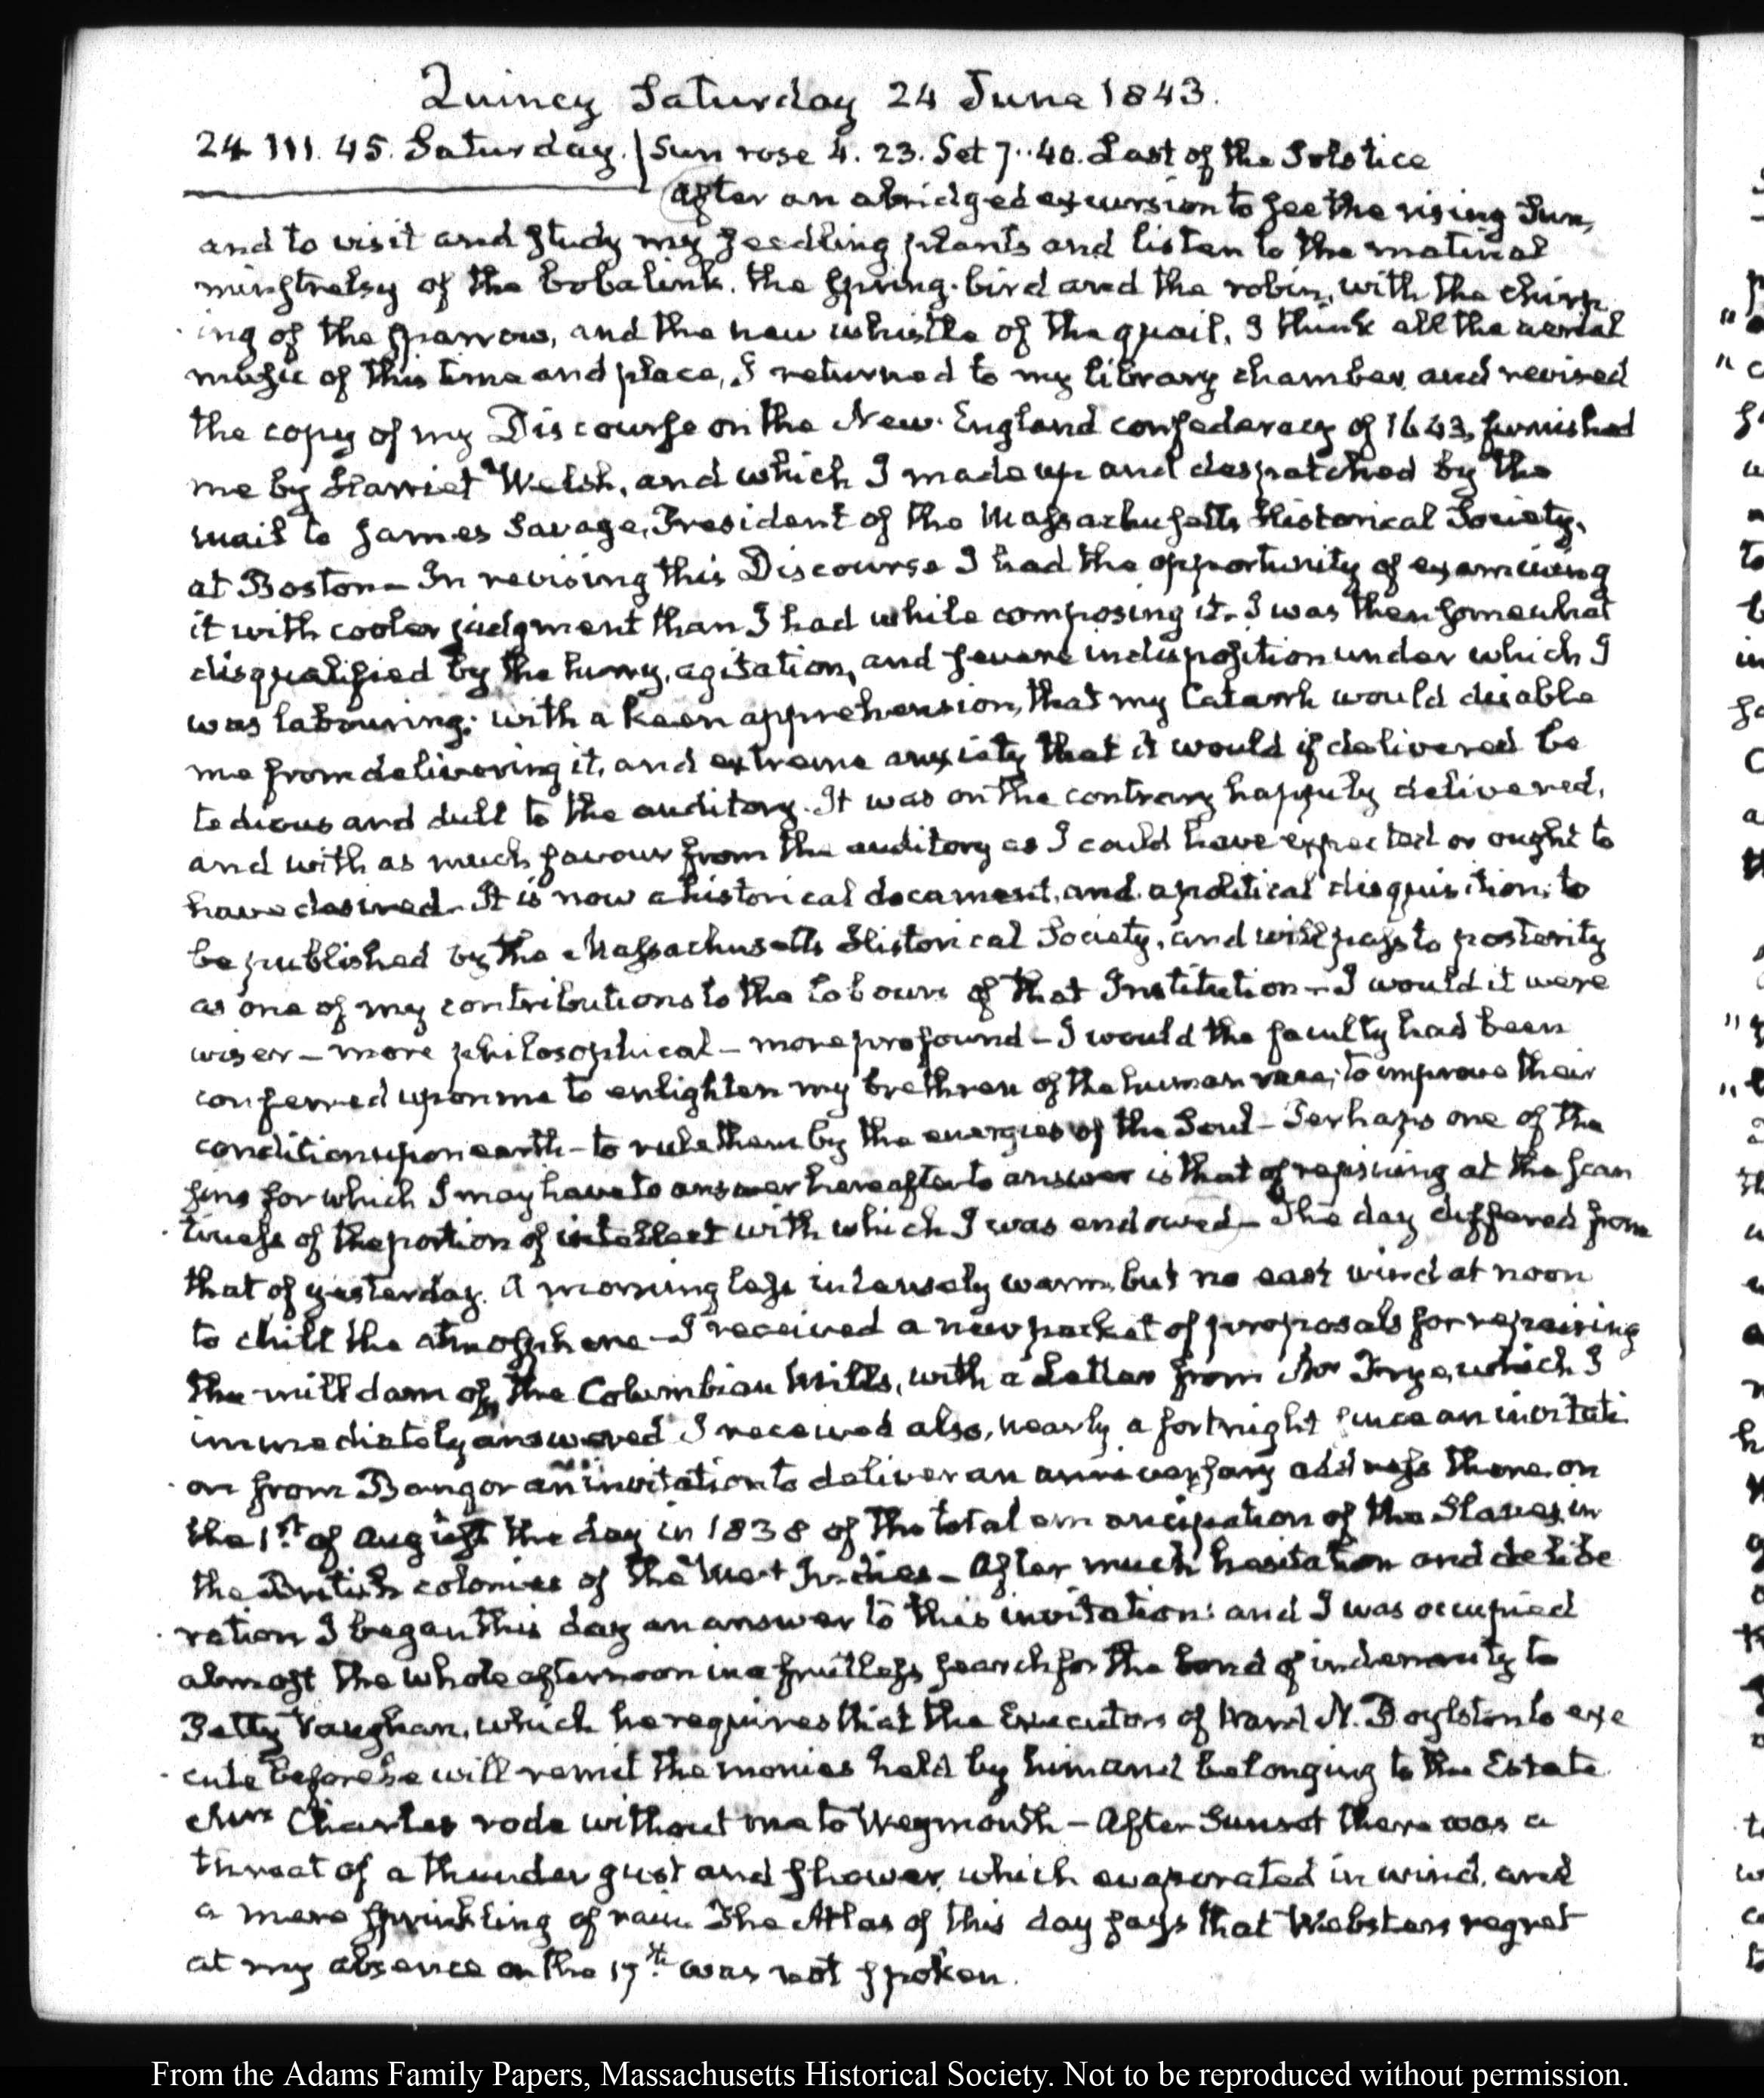 Quincy Saturday 24 June 1843.
24. III. 45. Saturday. Sun rose 4. 23. Set 7..40. Last of the Solstice
After an abridged excursion to see the rising Sun,
and to visit and study my seedling plants and listen to the matinal
minstrelsy of the bobalink. the spring-bird and the robin, with the chirp
ing of the sparrow, and the new whistle of the quail, I think all the aerial
music of this time and place, I returned to my library chamber and revised
the copy of my Discourse on the New-England confederacy of 1643, furnished
me by Harriet Welsh, and which I made up and despatched by the
mail to James Savage, President of the Massachusetts Historical Society,
at Boston— In revising this Discourse I had the opportunity of examining
it with cooler judgment than I had while composing it. I was then somewhat
disqualified by the hurry, agitation, and severe indisposition under which I
was labouring: with a keen apprehension, that my Catarrh would disable
me from delivering it, and extreme anxiety that it would if delivered be
tedious and dull to the auditory. It was on the contrary happily delivered,
and with as much favour from the auditory as I could have expected or ought to
have desired— It is now a historical document, and a political disquisition, to
be published by the Massachusetts Historical Society, and will pass to posterity
as one of my contributions to the labours of that Institution— I would it were
wiser— more philosophical— more profound— I would the faculty had been
conferred upon me to enlighten my brethren of the human race; to improve their
condition upon earth— to rule them by the energies of the Soul— Perhaps one of the
sins for which I may have to answer hereafter to answer is that of repining at the scan
tiness of the portion of intellect with which I was endowed— The day differed from
that of yesterday. A morning less intensely warm, but no east wind at noon
to chill the atmosphere— I received a new packet of proposals for repairing
the mill dam of the Columbian Mills, with a Letter from Mr Frye, which I
immediately answered I received also, nearly a fortnight since an invitati
on from Bangor an invitation to deliver an anniversary address there on
the 1st of August the day in 1838 of the total emancipation of the Slaves in
the British colonies of the West Indies— After much hesitation and delibe
ration I began this day an answer to this invitation: and I was occupied
almost the whole afternoon in a fruitless search for the bond of indemnity to
Petty Vaughan, which he requires that the Executors of Ward N. Boylston to exe
cute before he will remit the monies held by him and belonging to the Estate.
Mrs Charles rode without me to Weymouth— After Sunset there was a
threat of a thunder gust and shower, which evaporated in wind, and
a mere sprinkling of rain. The Atlas of this day says that Websters regret
at my absence on the 17th was not spoken.
From the Adams Family Papers, Massachusetts Historical Society. Not to be reproduced without permission.